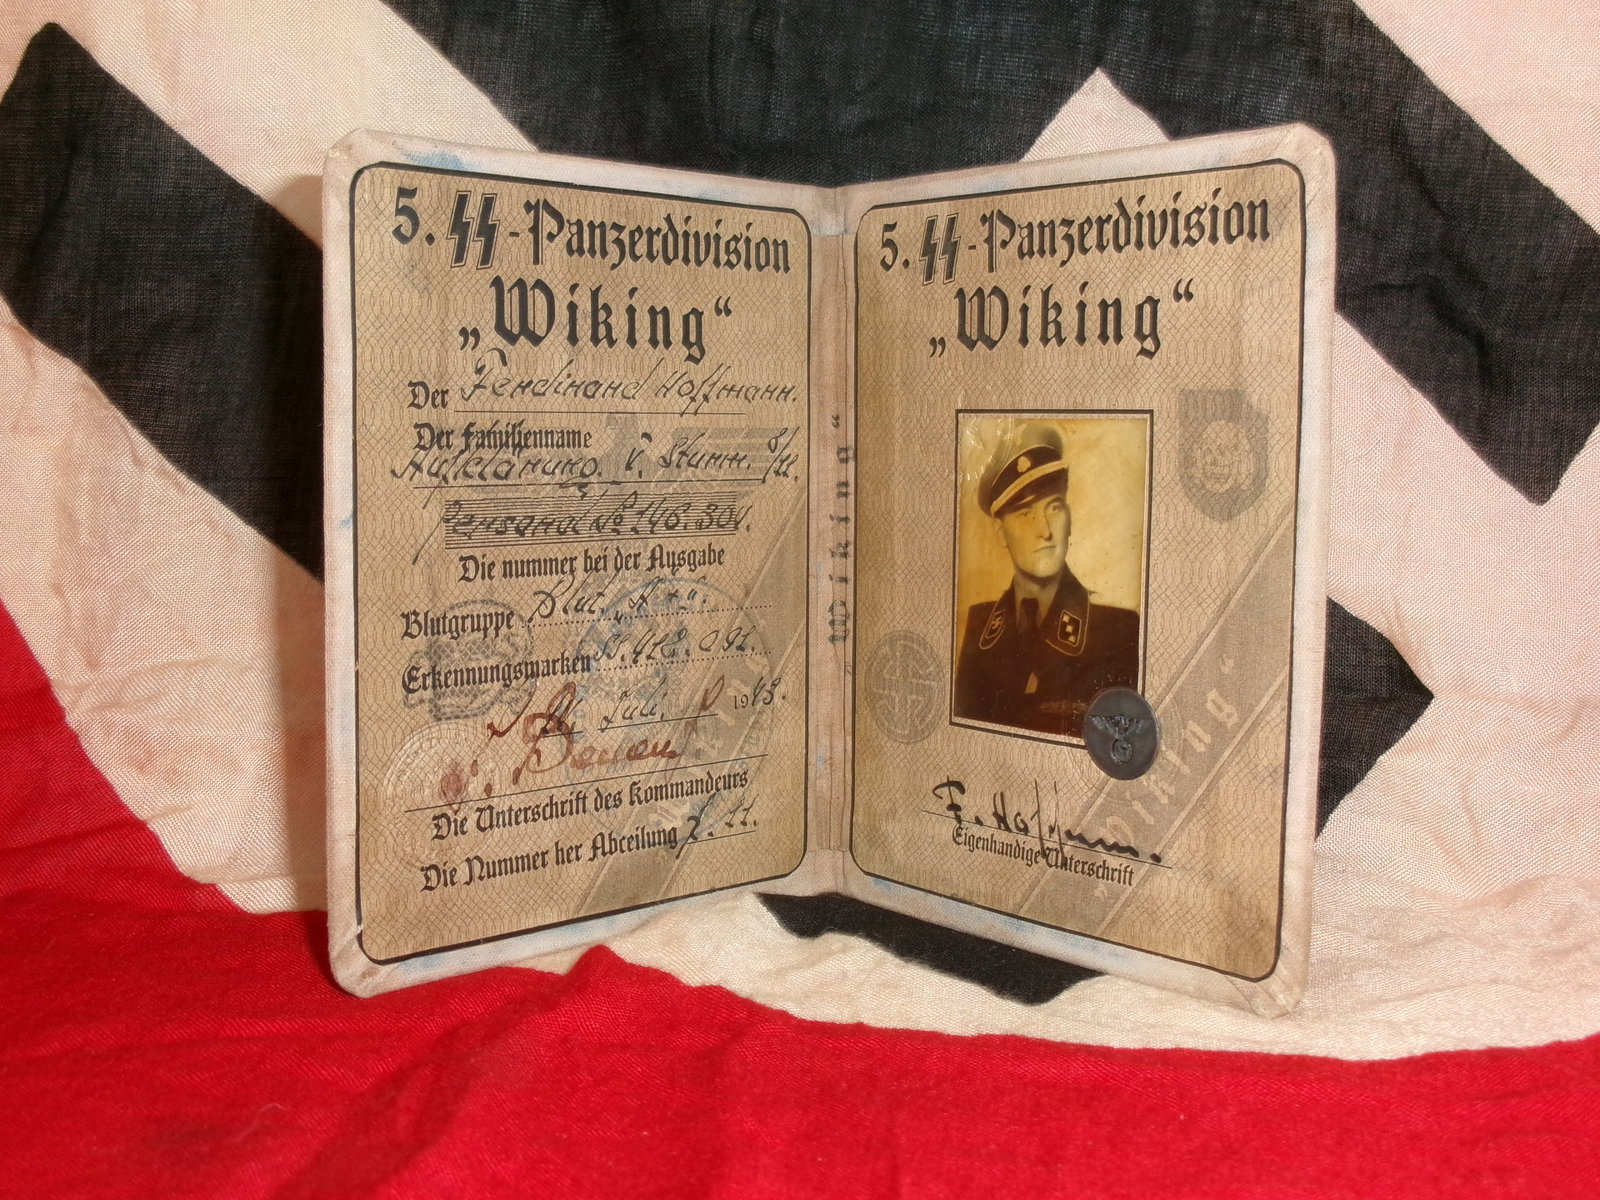 5. SS-Panzerdivision
„Wiking“
Der Ferdinand Hoffmann.
Der Familienname
Aufklärung. V. Sturm.
Personal № 146.304.
Die nummer bei der Ausgabe
Blutgruppe Blut. „A“
Erkennungsmarken SS.412.091.
Juli. 1943.
Die Unterschrift des Kommandeurs
Die Nummer her Abceilung 2.11.
Wiking“
5. SS-Panzerdivision
„Wiking“
F. Hoffmann.
Eigenhandige Unterschrift
„Wiking“